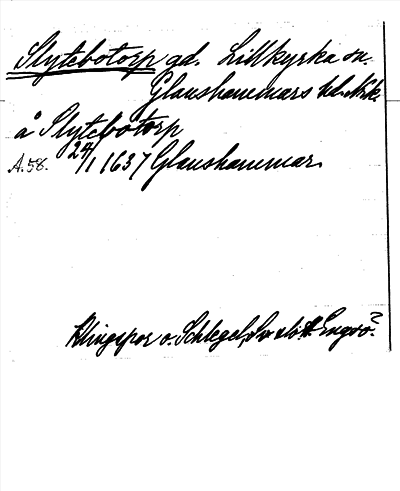 Slytebotorp gd. Lillkyrka sn.
Glanshammars hd. Nrk.
å Slytebotorp
A. 58. 24/1 1637 Glanshammar.
Klingspor o. Schlegel, Sv. slott. Engsö?